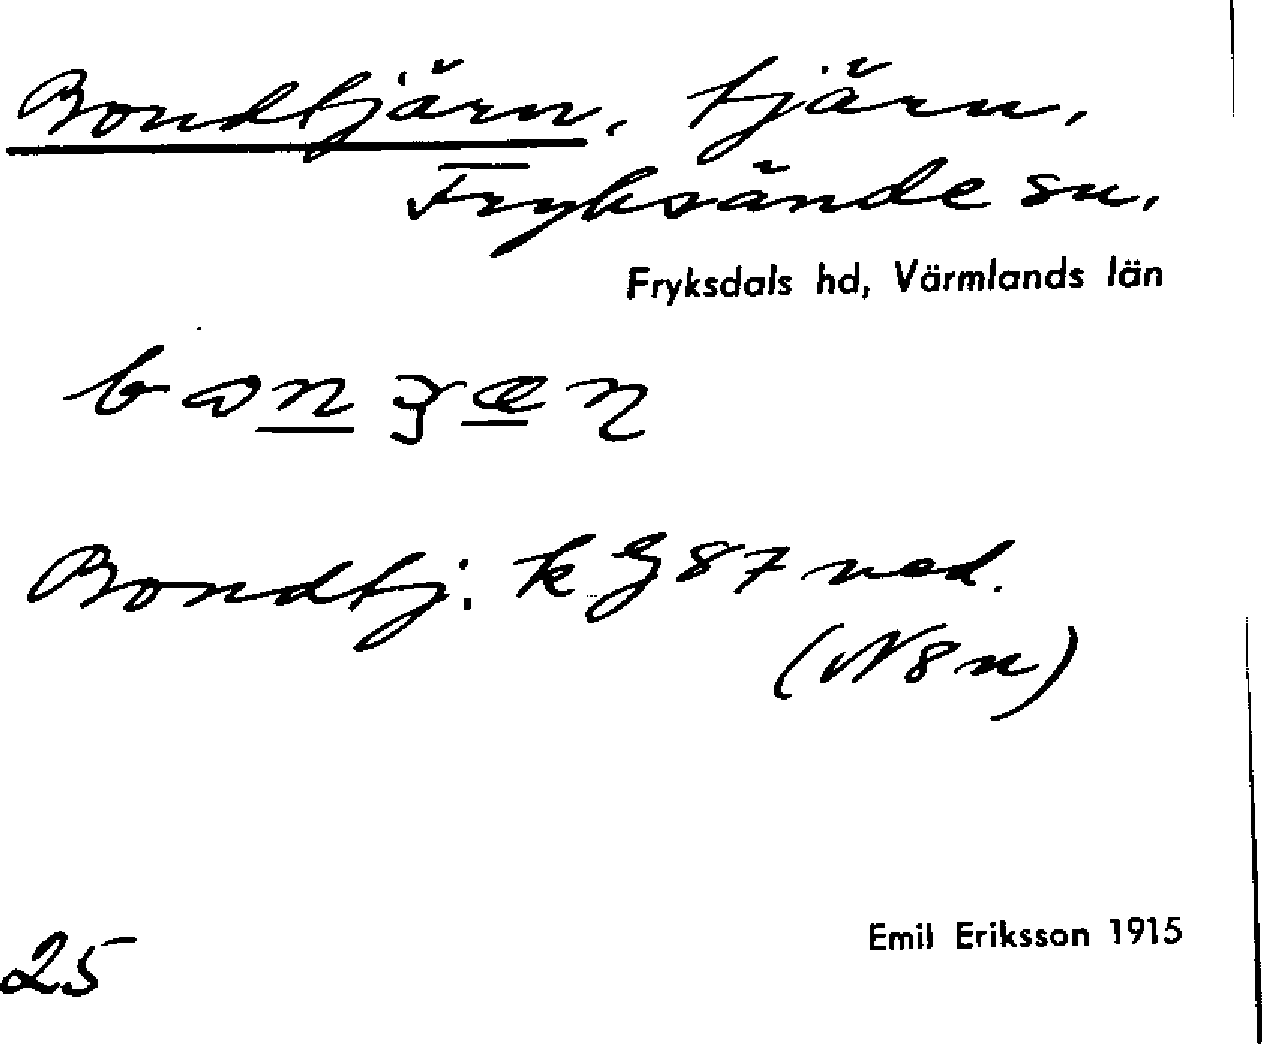 Bondtjärn, tjärn,
Fryksände sn,
Fryksdals hd, Värmlands län
Bondtj: k 87 ned.
(N8n)
25
Emil Eriksson 1915